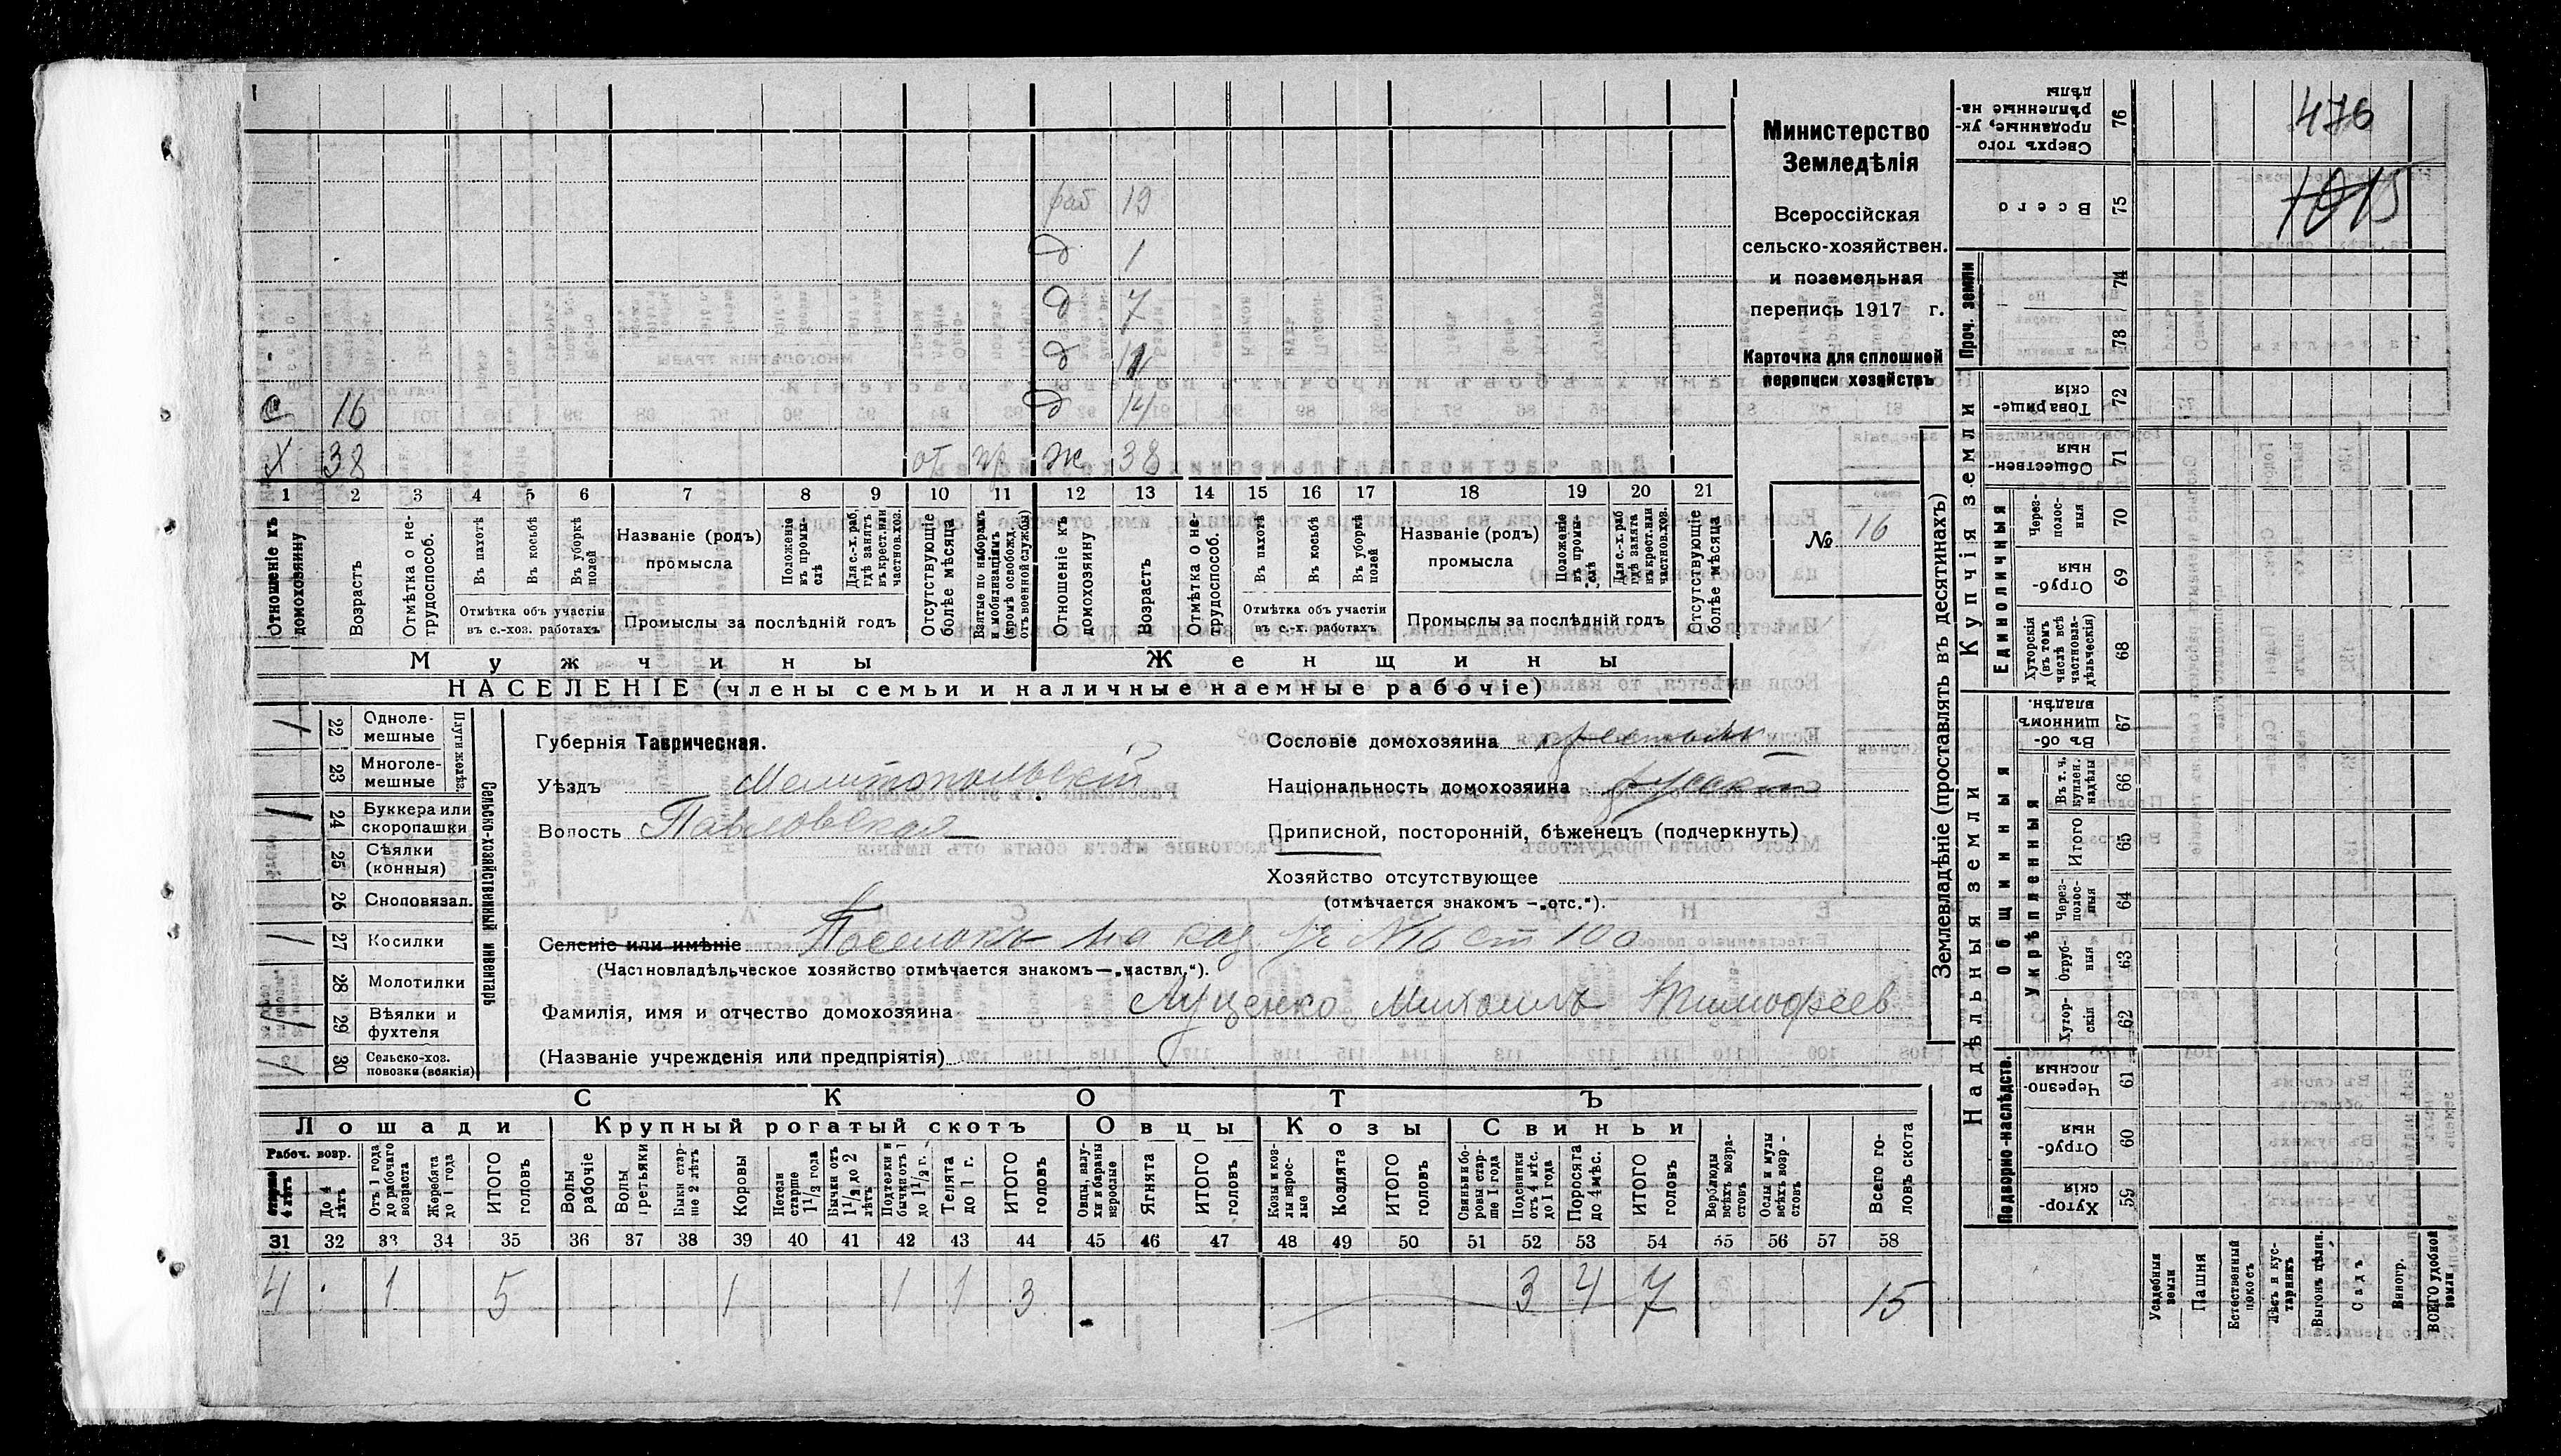 476
1015
Министерство
Земледѣлія
Всероссійская
сельско-хозяйствен.
и поземельная
перепись 1917 г.
Карточка для сплошной
переписи хозяйствъ
№ 16
раб 19
д 1
д 7
д 11
с 16 д 14
Х 38 от пр ж 38
1 2 3 4 5 6 7 8 9 10 11 12 13 14 15 16 17 18 19 20 21
Отношеніе къ домохозяину
Возрастъ
Отмѣтка о не-трудоспособ.
Въ пахотѣ
Въ косьбѣ
Въ уборкѣ полей
Отмѣтка объ участіи
въ с.-хоз. работахъ
Названіе (родъ)
промысла
Положеніе въ промы-слѣ
Для с.-х. раб, гдѣ занятъ въ крест. или частнов. хоз.
Промыслы за послѣдній годъ
Отсутствующіе болѣе мѣсяца
Взятые по наборамъ и мобилизаціямъ (кромѣ освобожд. отъ военной службы)
Отношеніе къ домохозяину
Возрастъ
Отмѣтка о не-трудоспособ.
Въ пахотѣ
Въ косьбѣ
Въ уборкѣ полей
Отмѣтка объ участіи
въ с.-х. работахъ
Названіе (родъ)
промысла
Положеніе въ промы-слѣ
Для с.-х. раб гдѣ занята въ крест. или частнов. хоз.
Промыслы за послѣдній годъ
Отсутствующіе болѣе мѣсяца
Мужчины Женщины
НАСЕЛЕНІЕ (члены семьи и наличные наемные рабочіе)
Сельско-хозяйственный инвентарь
Плуги желѣз.
22 Одноле-мешные 1
23 Многоле-мешные
24 Буккера или скоропашки 1
25 Сѣялки (конныя)
26 Сноповязал.
27 Косилки 1
28 Молотилки
29 Вѣялки и фухтеля 1
30 Сельско-хоз. повозки (всякія) 1
Губернія Таврическая.
Уѣздъ Мелитопольскій
Волость Павловская
Сословіе домохозяина крестьян
Національность домохозяина русскій
Приписной, посторонній, бѣженецъ (подчеркнуть)
Хозяйство отсутствующее
(отмѣчается знакомъ —„отс.“).
Селеніе или имѣніе Поселокъ на каз уч №16 ст 100
(Частновладѣльческое хозяйство отмѣчается знакомъ—„частвл.“).
Фамилія, имя и отчество домохозяина Луценко Михаилъ Тимофеев
(Названіе учрежденія или предпріятія)
СКОТЪ
Лошади Крупный рогатый скотъ Овцы Козы Свиньи
Рабоч. возр.
старше 4 лѣтъ
До 4 лѣтъ
Отъ 1 года до рабочаго возраста
Жеребята до 1 года
ИТОГО головъ
Волы рабочіе
Волы третьяки
Быки стар-ше 2 лѣтъ
Коровы
Нетели старше 1½ года
Бычки отъ 1½ до 2 лѣтъ
Подтелки и бычки отъ 1 до 1½ г.
Телята до 1 г.
ИТОГО головъ
Овцы, валу-хи и бараны взрослые
Ягнята
ИТОГО головъ
Козы и коз-лы взрос-лые
Козлята
ИТОГО головъ
Свиньи и бо-ровы стар-ше 1 года
Подсвинки отъ 4 мѣс. до 1 года
Поросята до 4 мѣс.
ИТОГО головъ
Верблюды всѣхъ возра-стовъ
Ослы и мулы всѣхъ возр-стовъ
Всего го-ловъ скота
31 32 33 34 35 36 37 38 39 40 41 42 43 44 45 46 47 48 49 50 51 52 53 54 55 56 57 58
4 1 5 1 1 1 3 3 4 7 15
Землевладѣніе (проставлять въ десятинахъ)
Сверхъ того проданные, ук-рѣпленные на-дѣлы 76
Всего 75
Проч. земли
74
73
Купчія земли
Товарище-скія 72
Обществен-ныя 71
Единоличныя
Через-полос-ныя 70
Отруб-ныя 69
Хуторскія (въ томъ числѣ всѣ частновла-дѣльческія) 68
Надѣльныя земли
Общинныя
Въ об-щинномъ владѣн. 67
Укрѣпленныя
Въ т. ч. куплен. надѣлы 66
Итого 65
Через-полос-ныя 64
Отруб-ныя 63
Хутор-скія 62
Подворно-наслѣдств.
Черезпо-лосныя 61
Отруб-ныя 60
Хутор-скія 59
Усадебныя земли
Пашня
Естественный покосъ
Лѣсъ и кус-тарникъ
Выгонъ цѣлин.
Садъ
Виногр.
ВСЕГО удобной земли